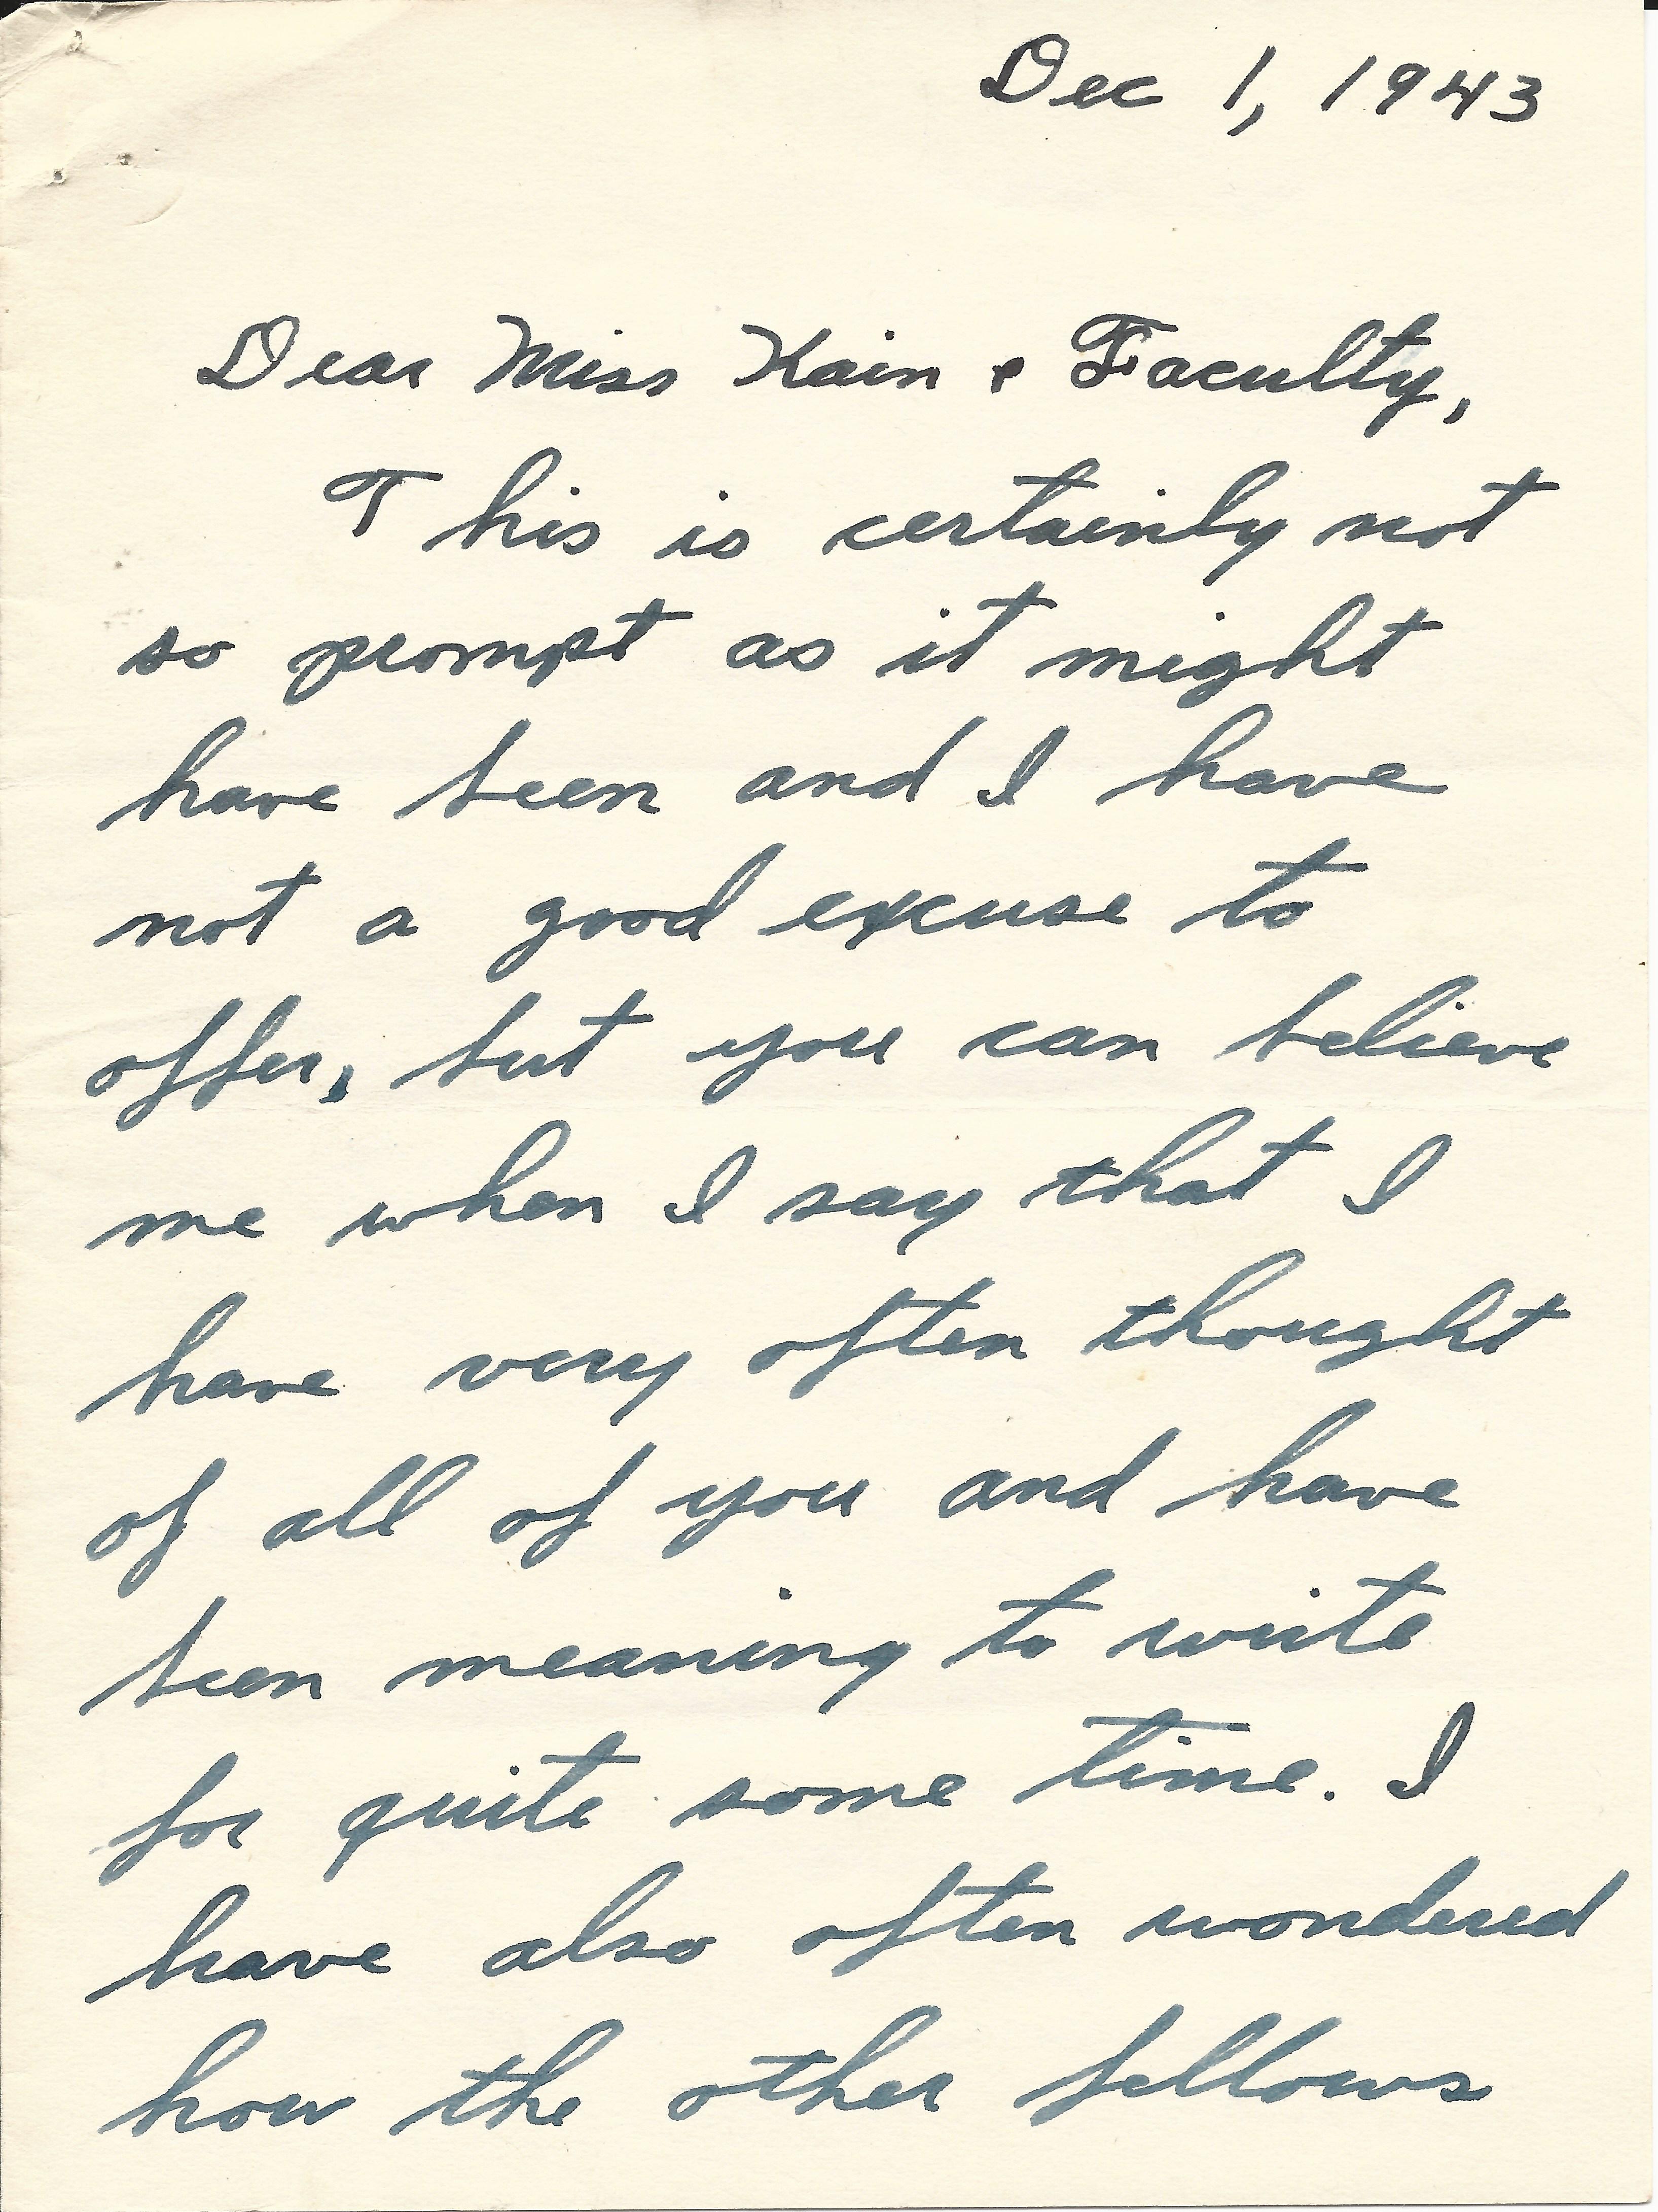 Dec 1, 1943
Dear Miss Kain & Faculty,
This is certainly not
so prompt as it might
have been and I have
not a good excuse to
offer, but you can believe
me when I say that I
have very often thought
of all of you and have
been meaning to write
for quite some time. I
have also often wondered
how the other fellows